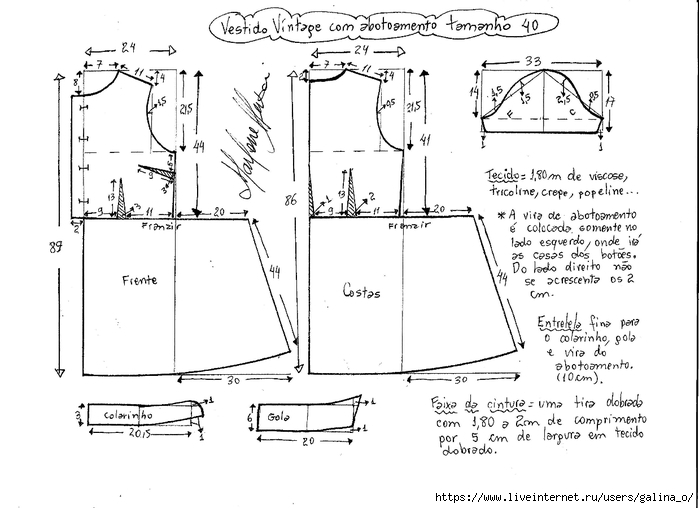 Vestido Vintage com abotoamento tamanho 40
24
7
11
4
8
1,5
21,5
44
89
7
9
3
5
13
3
9
11
20
2
Franzir
Frente
44
30
24
7
11
4
2
1,5
21,5
41
86
13
1
2
9
11
20
Franzir
Costas
44
30
33
14
1,5
1,5
2,5
0,5
17
F
C
1
1
Tecido = 1,80 m de viscose,
tricoline, crepe, popeline...
* A vira de abotoamento
é colocada somente no
lado esquerdo, onde irá
as casas dos botões.
Do lado direito não
se acrescenta os 2
cm.
Entretela fina para
o colarinho, gola
e vira do
abotoamento.
(10cm).
Faixa da cintura = uma tira dobrada
com 1,80 a 2cm de comprimento
por 5 cm de largura em tecido
dobrado.
3
Colarinho
20,5
1
1
6
Gola
20
1
1
https://www.liveinternet.ru/users/galina_o/